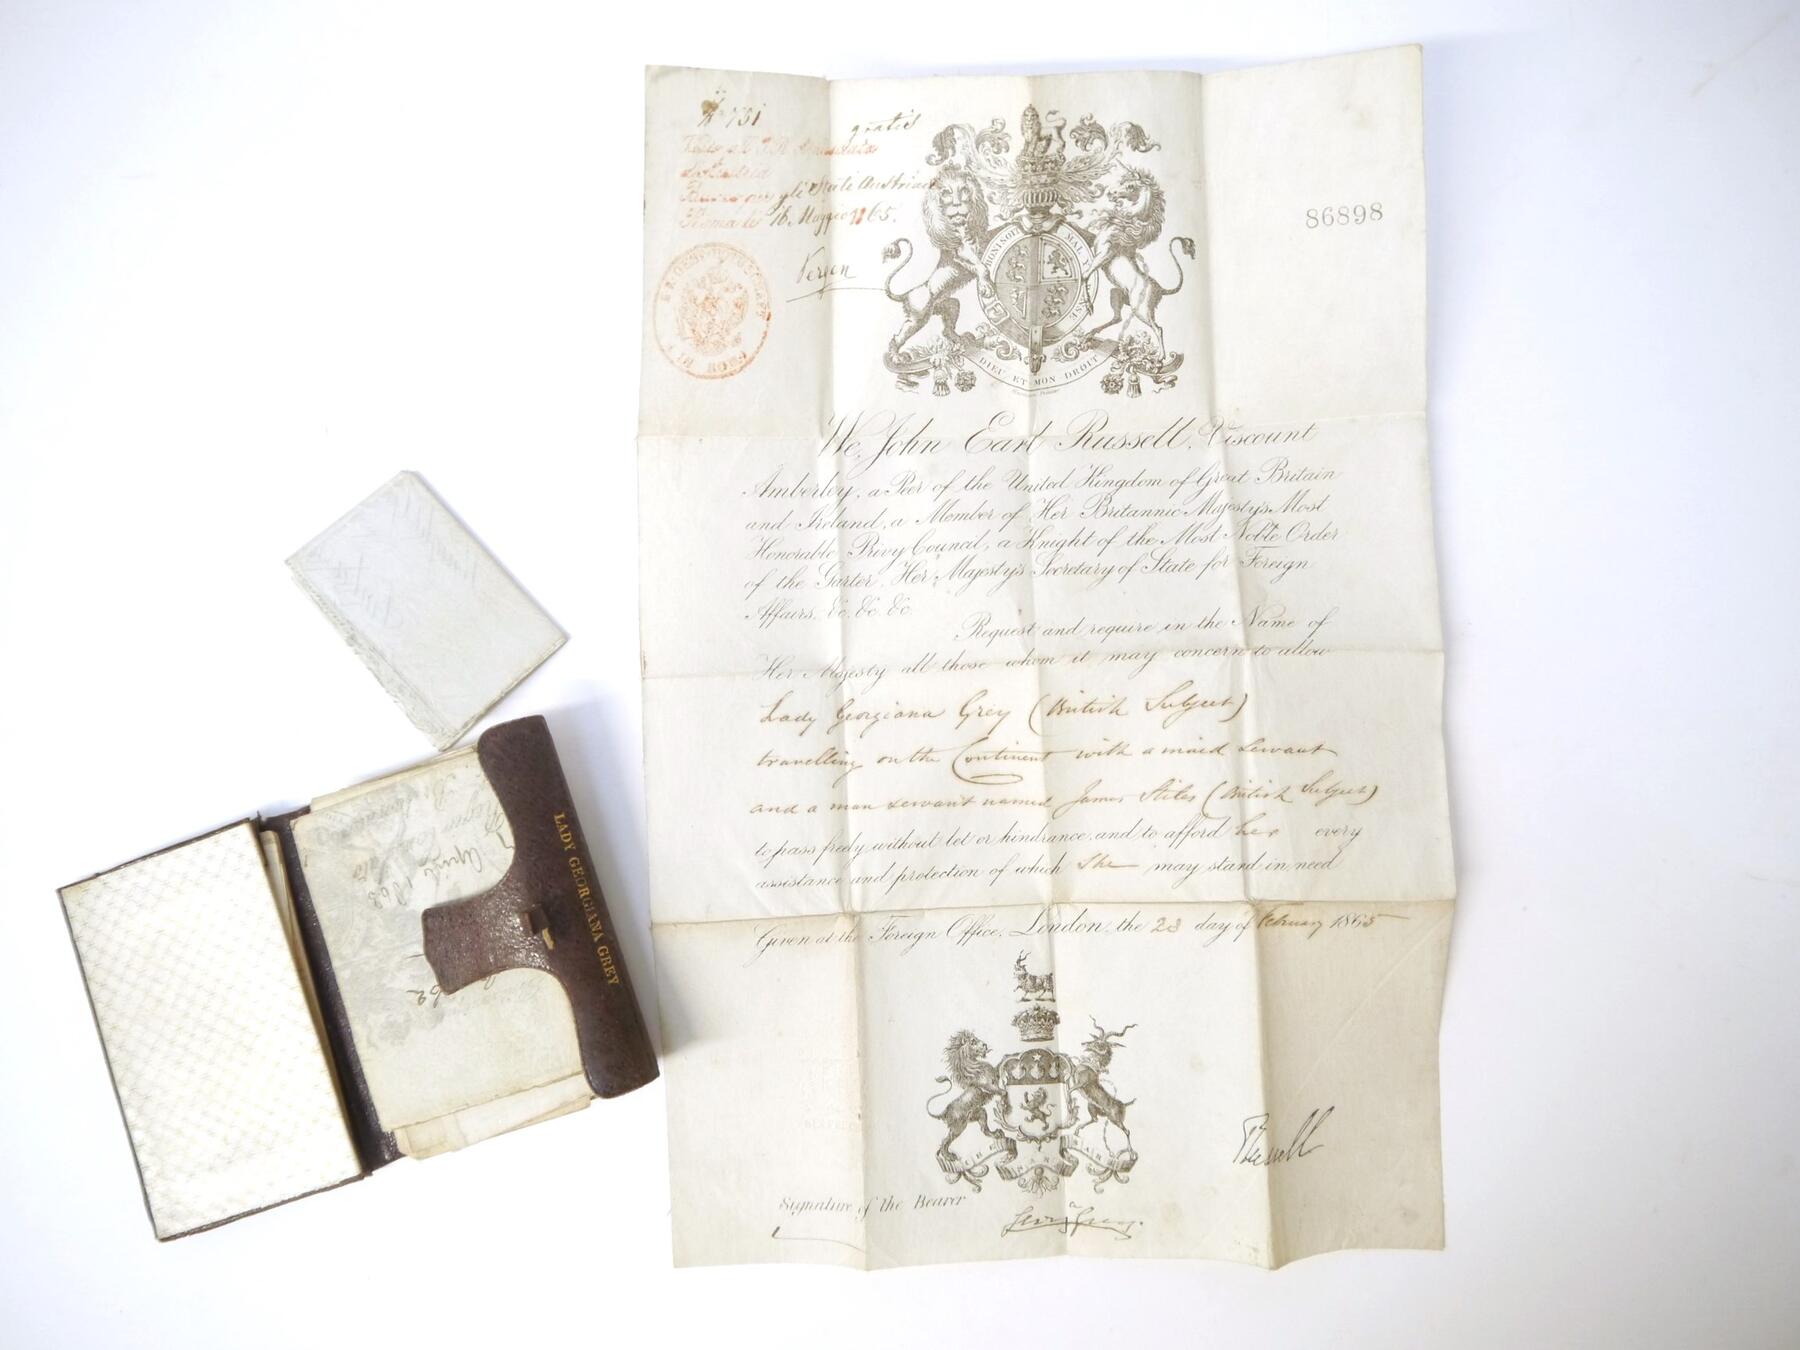 No 751
gratis
Visto all' I. R. Ambasciata
Austriaca
Buono per gli Stati Austriaci
Roma li 16 Maggio 1865.
IN ROM
86898
HONI SOIT QUI MAL Y PENSE
DIEU ET MON DROIT
We, John Earl Russell, Viscount
Amberley, a Peer of the United Kingdom of Great Britain
and Ireland, a Member of Her Britannic Majesty's Most
Honorable Privy Council, a Knight of the Most Noble Order
of the Garter, Her Majesty's Secretary of State for Foreign
Affairs, &c. &c. &c.
Request and require in the Name of
Her Majesty all those whom it may concern to allow
Lady Georgiana Grey (British Subject)
travelling on the Continent with a maid servant
and a man servant named James Stiles (British Subject)
to pass freely without let or hindrance, and to afford her every
assistance and protection of which She may stand in need
Given at the Foreign Office, London, the 23 day of February 1865
CHE SARA SARA
Russell
Signature of the Bearer
Georga Grey.
LADY GEORGIANA GREY
April 1863